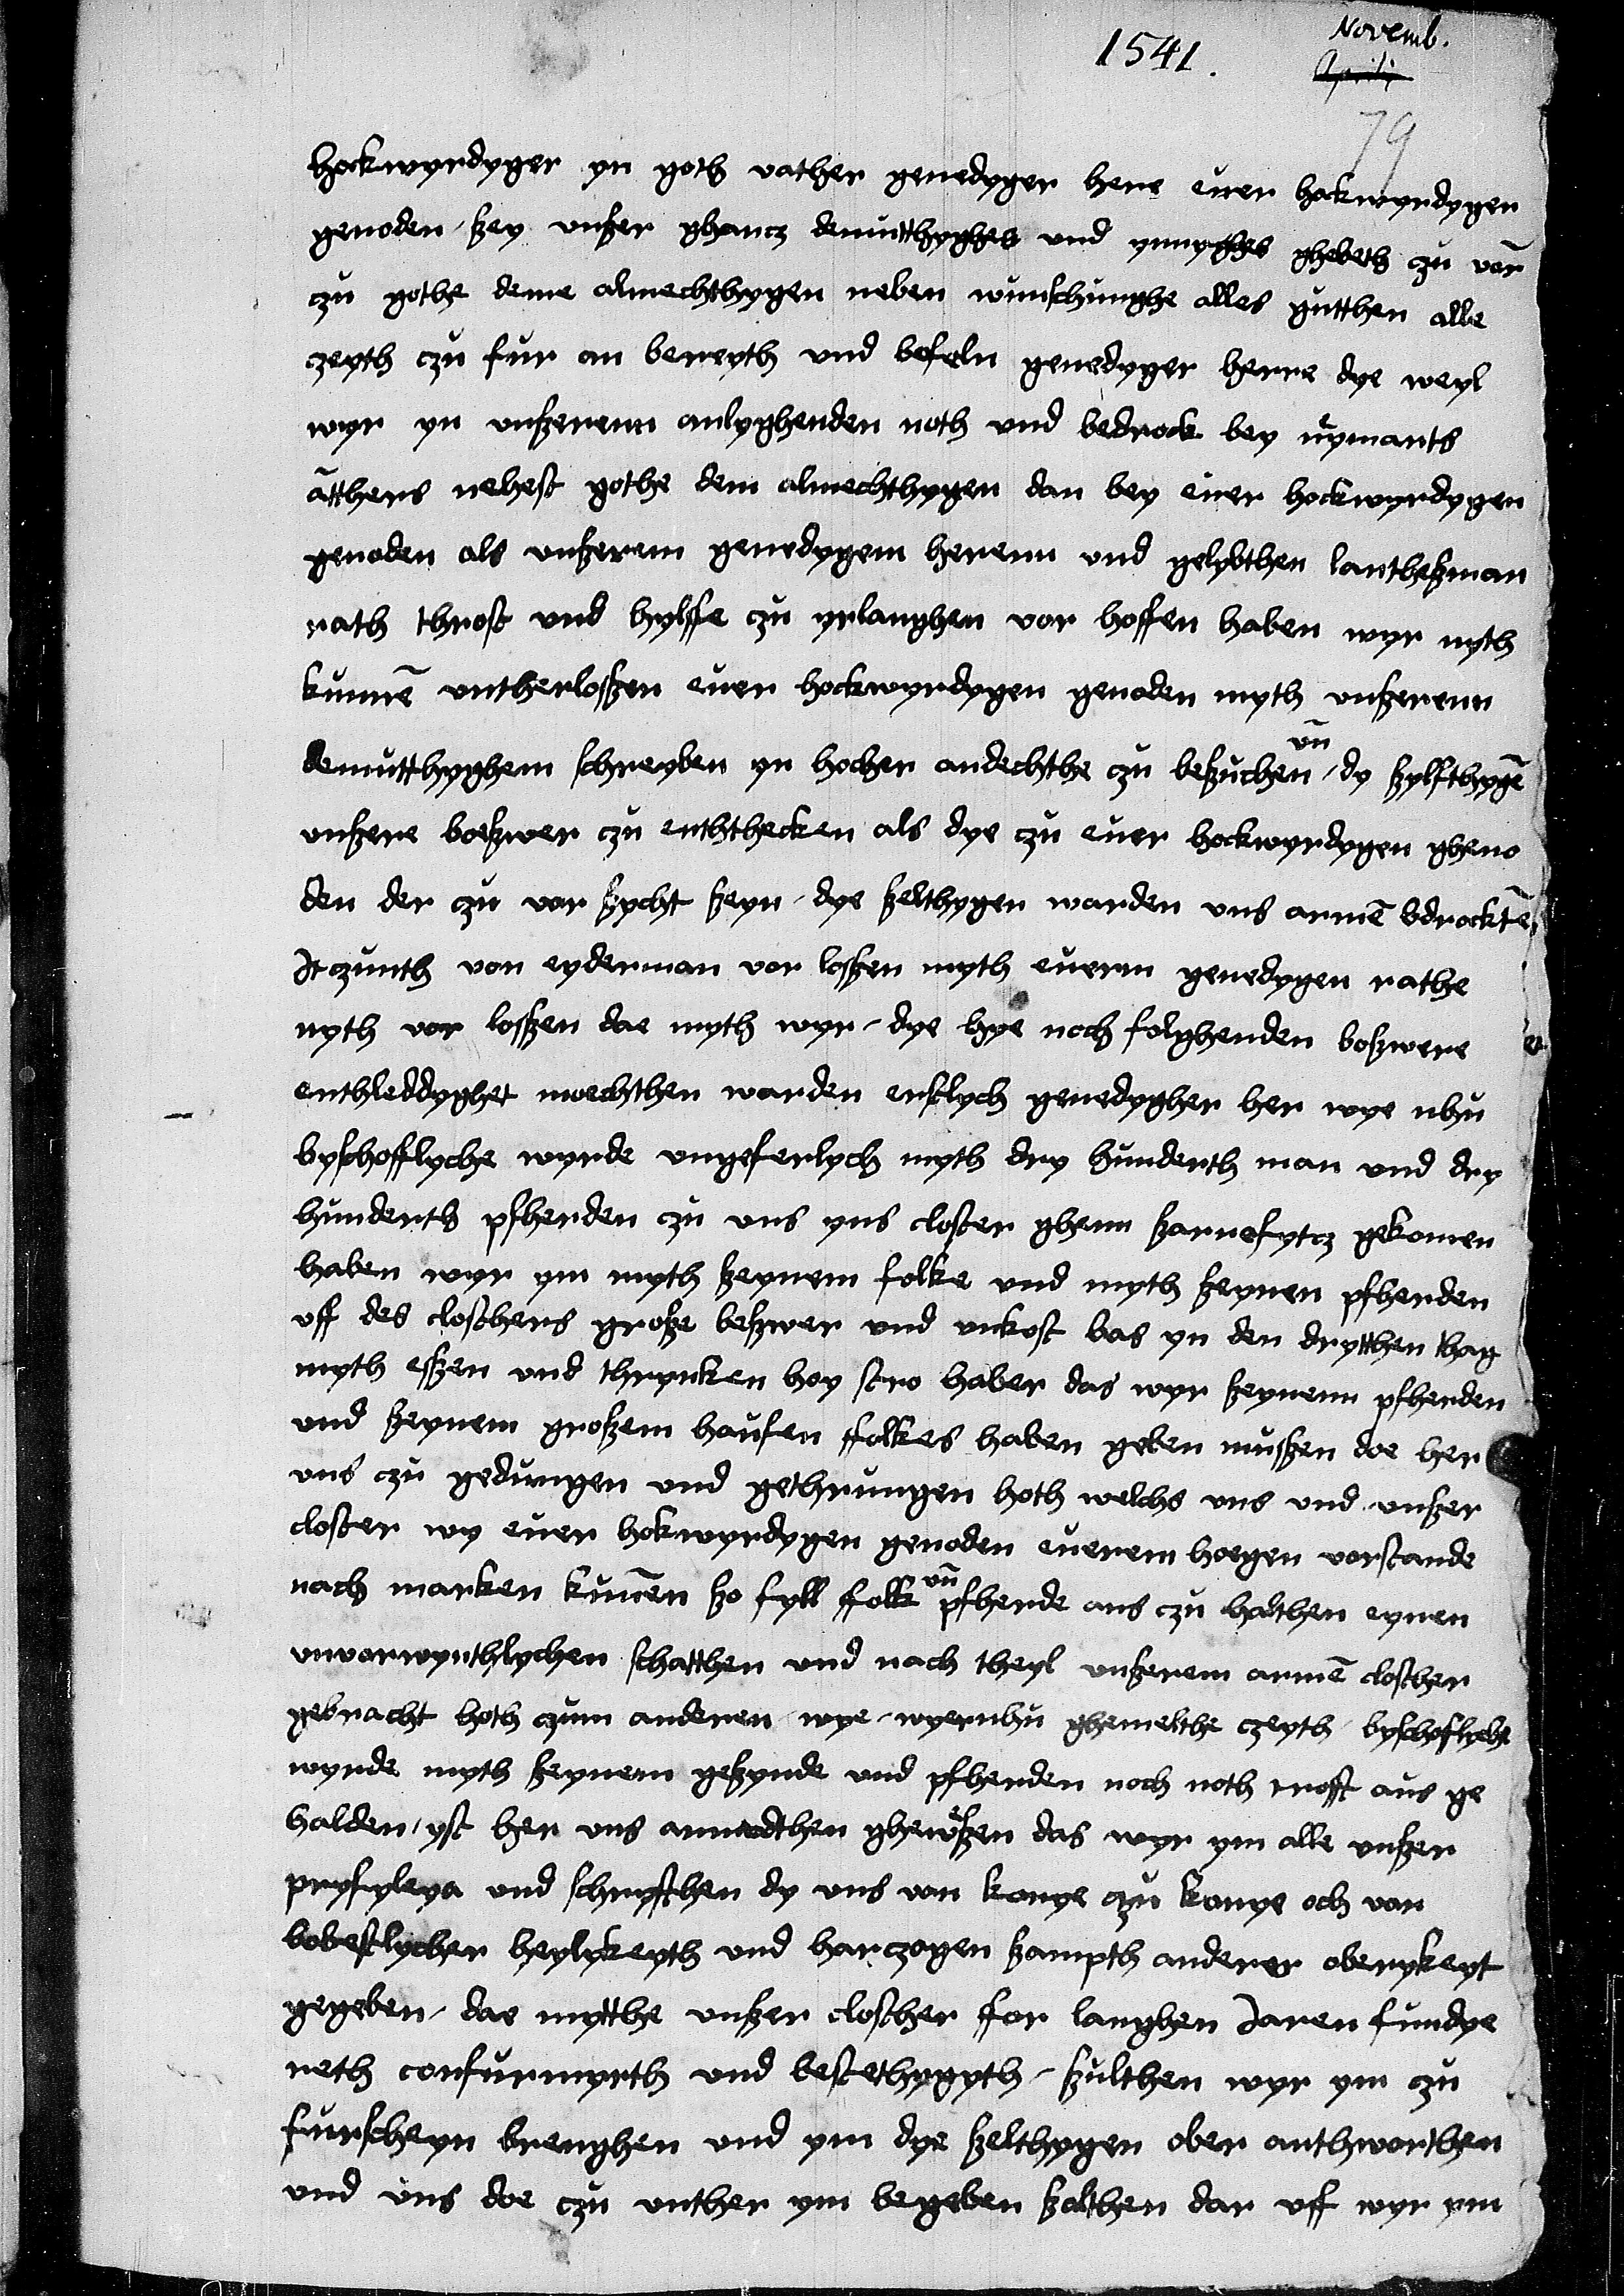 1541.
Novemb.
Aprilis
79
hockwyrdyger yn goth vather genedyger here euer hockwyrdygen
genoden szey vnszer ghancz demutthyghes vnd ynnyghes ghebeth czu vor
czu gothe deme almechthygen neben wunschunghe alles gutthen alle
czeyth czu fur an bereyth vnd befoln genedyger herre dye weyl
wyr yn vnszerenn anlyghenden noth vnd bedrock bey nymants
atthers nehest gothe dem almechthygen dan bey euer hockwyrdygen
genoden als vnszerem genedygem herenn vnd gelybthen lantheszman
rath throst vnd hylffe czu yrlanghen vor hoffen haben wyr nyth
kunnē vntherloszen euer hockwyrdygen genoden myth vnszerenn
demutthyghem schreyben yn hocher andechthe czu beszuchen vn̄ dy szylfthygē
vnszere boeszwer czu enththecken als dye czu euer hockwyrdygen gheno
den der czu vor szycht szeyn dye szelthygen warden vns armē bdrocktē
Itczunth von eyderman vor loszen myth euerm genedygen rathe
nyth vor loszen dae myth wyr dye hye noch folghenden boszwere
enthleddyghet moechthen warden erstlych genedygher her wye nhu
byschofflyche wyrde vngeferlych myth dry hunderth man vnd dry
hunderth pfherden czu vns yns closter ghenn szarnefytcz gekomen
haben wyr ym myth szeynem folke vnd myth szeynen pfherden
vff des closthers grosze beszwer vnd vnkost bas yn den drytthen thag
myth eszen vnd thrynken hoy stro haber das wyr szeynenn pfherden
vnd szeynem groszem haufen ffolkes haben geben muszen doe her
vns czu gedungen vnd gethrungen hoth welchs vns vnd vnszer
closter wy euer hokwyrdygen genoden euerem hoegen vorstande
nach marken kunen szo fyll ffolk vn̄ pfherde aus czu halthen eynen
vnvorwynthlychen schatthen vnd nach theyl vnszerem armē closther
gebracht hoth czum anderen wye wyernhu ghemelthe czeyth byschoflyche
wyrde myth szeynem geszynde vnd pfherden noch noth trofft aus ge
halden yst her vns anmodthen gheweszen das wyr ym alle vnszer
pryfyleya vnd schryfthen dy vns von konye czu konye och von
bobestlycher heylykeyth vnd harczogen szampth anderer oberykeyt
gegeben dae mytthe vnszer closther ffor langhen Jaren fundye
reth confurmyrth vnd bestethygyth szulthen wyr ym czu
furscheyn brenghen vnd ym dye szelthygen ober anthworthen
vnd vns doe czu vnther ym begeben szolthen dar vff wyr ym